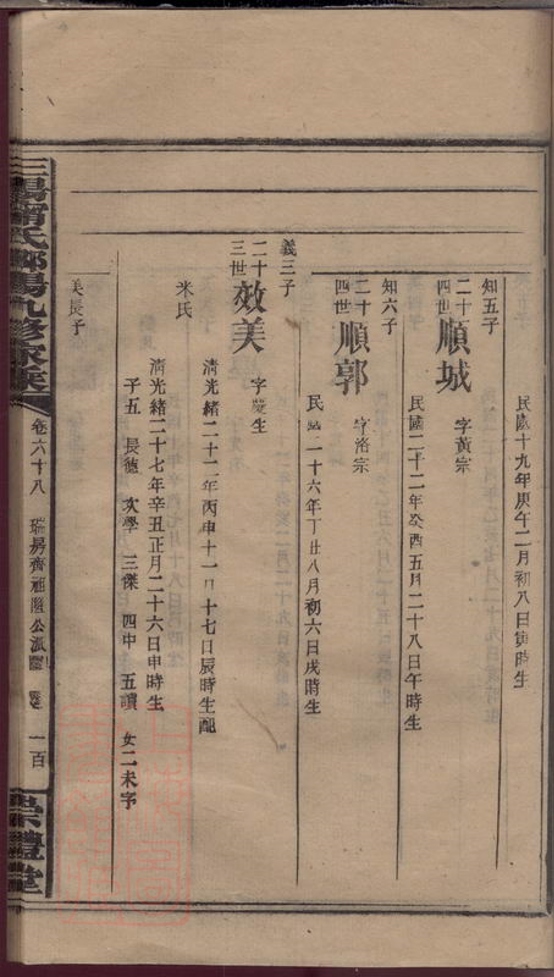 民國十九年庚午二月初八日寅時生
知五子
二十四世 順城 字黃宗
民國二十二年癸酉五月二十八日午時生
知六子
二十四世 順郭 字洛宗
民國二十六年丁丑八月初六日戌時生
義三子
二十三世 效美 字慶生
淸光緒二十二年丙申十一月十七日辰時生配
米氏
淸光緒二十七年辛丑正月二十六日申時生
子五 長德 次學 三傑 四中 五讀 女二未字
美長子
氏 陽九修家
卷六十八 瑞房齊祖隆公派 一百
崇禮堂